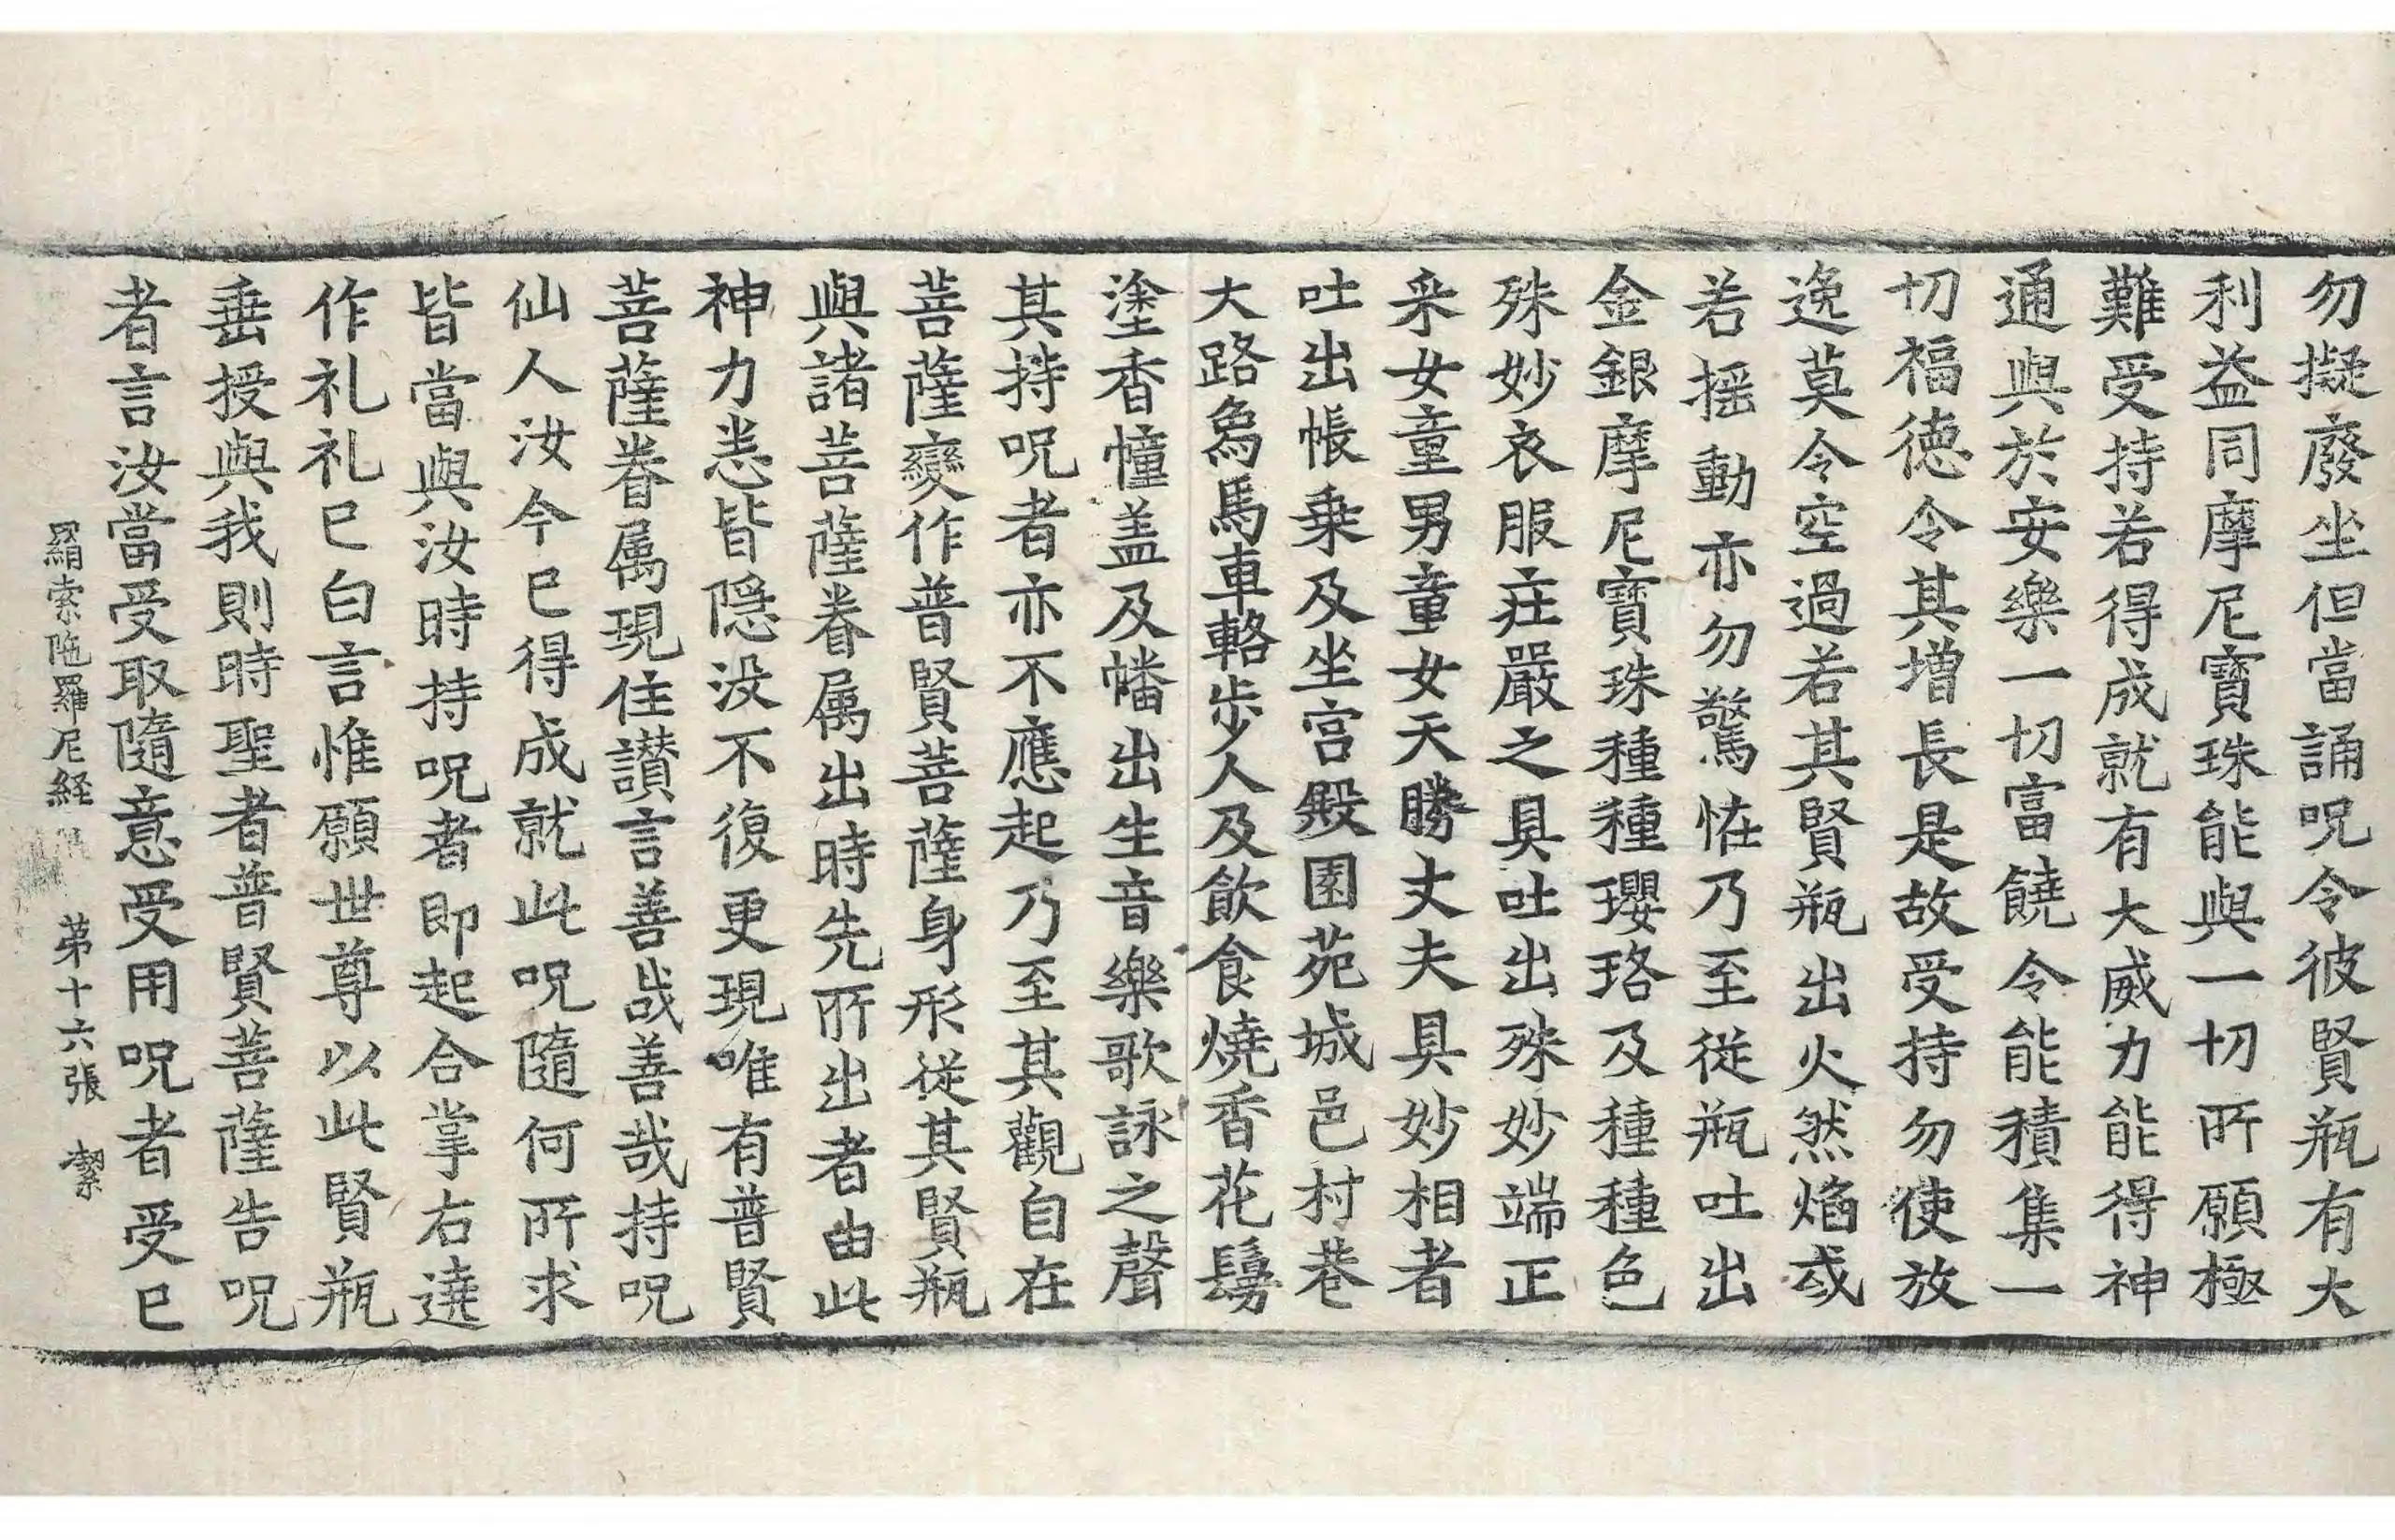 勿擬廢坐但當誦呪令彼賢瓶有大
利益同摩尼寶珠能與一切所願極
難受持若得成就有大威力能得神
通與於安樂一切富饒令能積集一
切福德令其增長是故受持勿使放
逸莫令空過若其賢瓶出火然焰或
若摇動亦勿驚恠乃至從瓶吐出
金銀摩尼寶珠種種瓔珞及種種色
殊妙衣服莊嚴之具吐出殊妙端正
采女童男童女天勝丈夫具妙相者
吐出帳乗及坐宫殿園苑城邑村巷
大路象馬車輅步人及飲食燒香花鬘
塗香幢盖及幡出生音樂歌詠之聲
其持呪者亦不應起乃至其觀自在
菩薩變作普賢菩薩身形從其賢瓶
與諸菩薩眷属出時先所出者由此
神力悉皆隠没不復更現唯有普賢
菩薩眷属現住讃言善哉善哉持呪
仙人汝今已得成就此呪隨何所求
皆當與汝時持呪者即起合掌右遶
作礼礼已白言惟願世尊以此賢瓶
垂授與我則時聖者普賢菩薩告呪
者言汝當受取隨意受用呪者受已
羂索陁羅尼経 苐十六張 潔